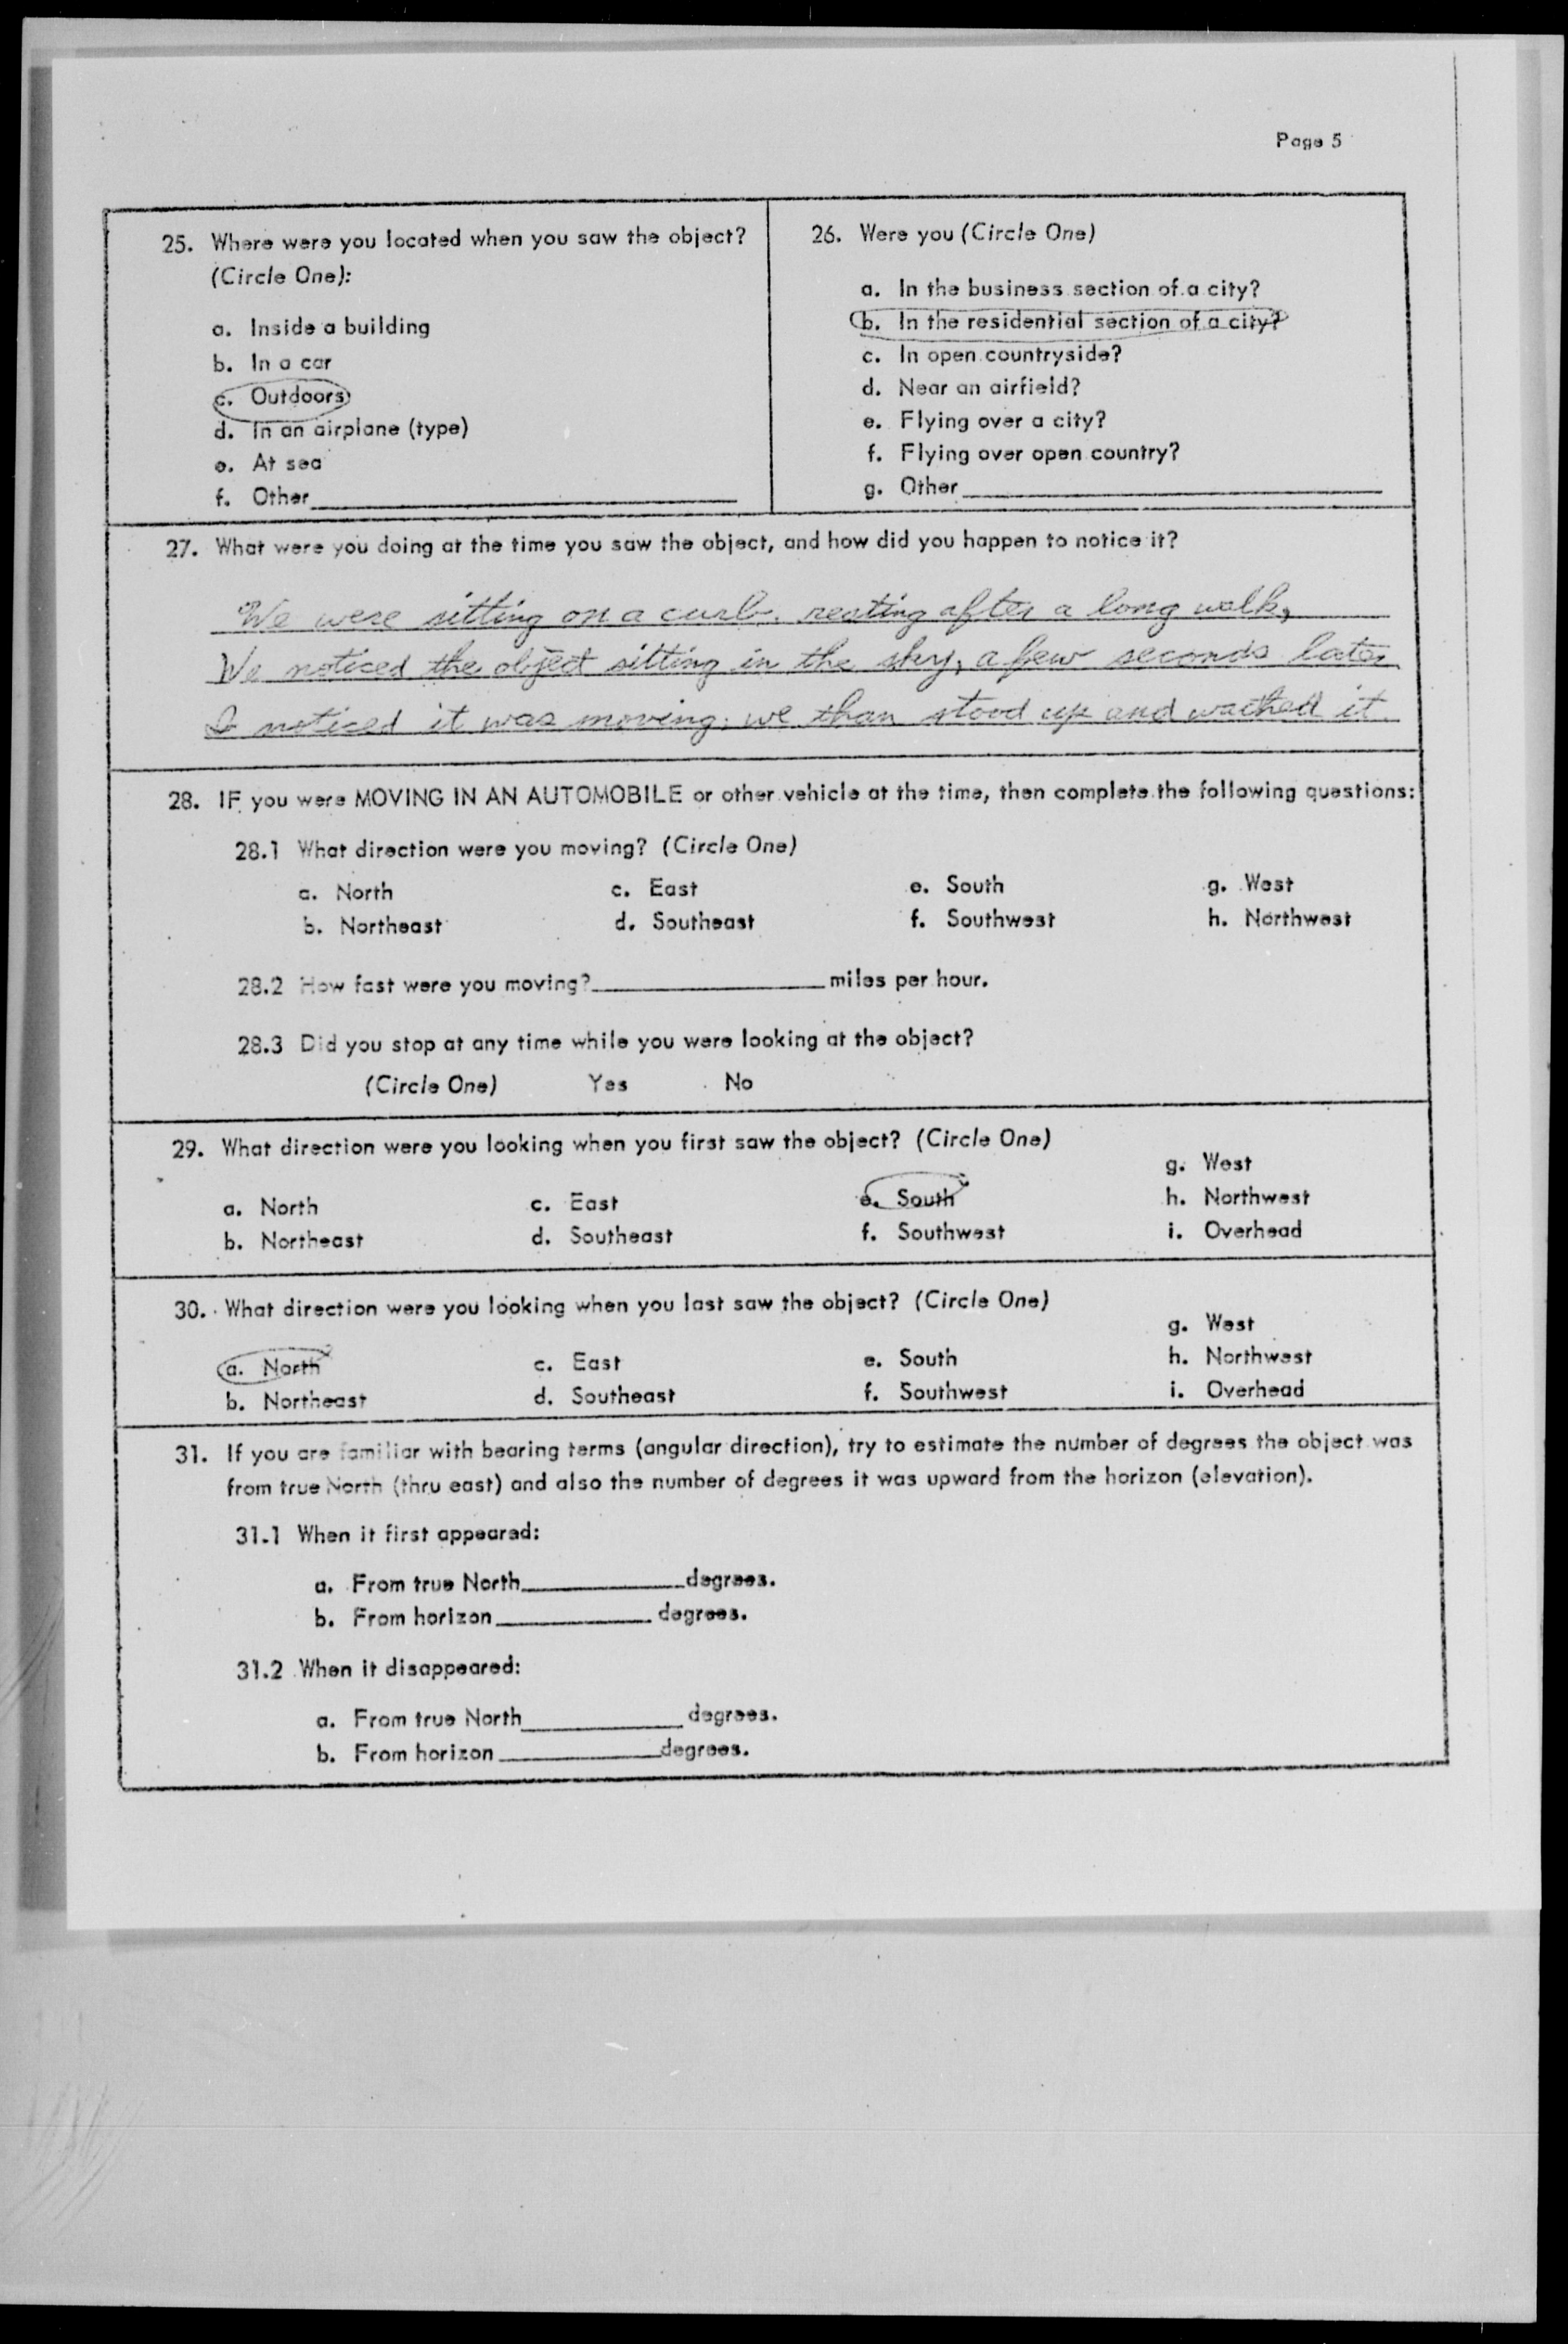 Page 5
25. Where were you located when you saw the object?
(Circle One):
a. Inside a building
b. In a car
c. Outdoors
d. In an airplane (type)
e. At sea
f. Other
26. Were you (Circle One)
a. In the business section of a city?
b. In the residential section of a city?
c. In open countryside?
d. Near an airfield?
e. Flying over a city?
f. Flying over open country?
g. Other
27. What were you doing at the time you saw the object, and how did you happen to notice it?
We were sitting on a curb. resting after a long walk,
We noticed the object sitting in the sky, a few seconds later
I noticed it was moving. we than stood up and wathed it.
28. IF you were MOVING IN AN AUTOMOBILE or other vehicle at the time, then complete the following questions:
28.1 What direction were you moving? (Circle One)
a. North c. East e. South g. West
b. Northeast d. Southeast f. Southwest h. Northwest
28.2 How fast were you moving? miles per hour.
28.3 Did you stop at any time while you were looking at the object?
(Circle One) Yes No
29. What direction were you looking when you first saw the object? (Circle One)
g. West
a. North c. East e. South h. Northwest
b. Northeast d. Southeast f. Southwest i. Overhead
30. What direction were you looking when you last saw the object? (Circle One)
g. West
a. North c. East e. South h. Northwest
b. Northeast d. Southeast f. Southwest i. Overhead
31. If you are familiar with bearing terms (angular direction), try to estimate the number of degrees the object was
from true North (thru east) and also the number of degrees it was upward from the horizon (elevation).
31.1 When it first appeared:
a. From true North degrees.
b. From horizon degrees.
31.2 When it disappeared:
a. From true North degrees.
b. From horizon degrees.